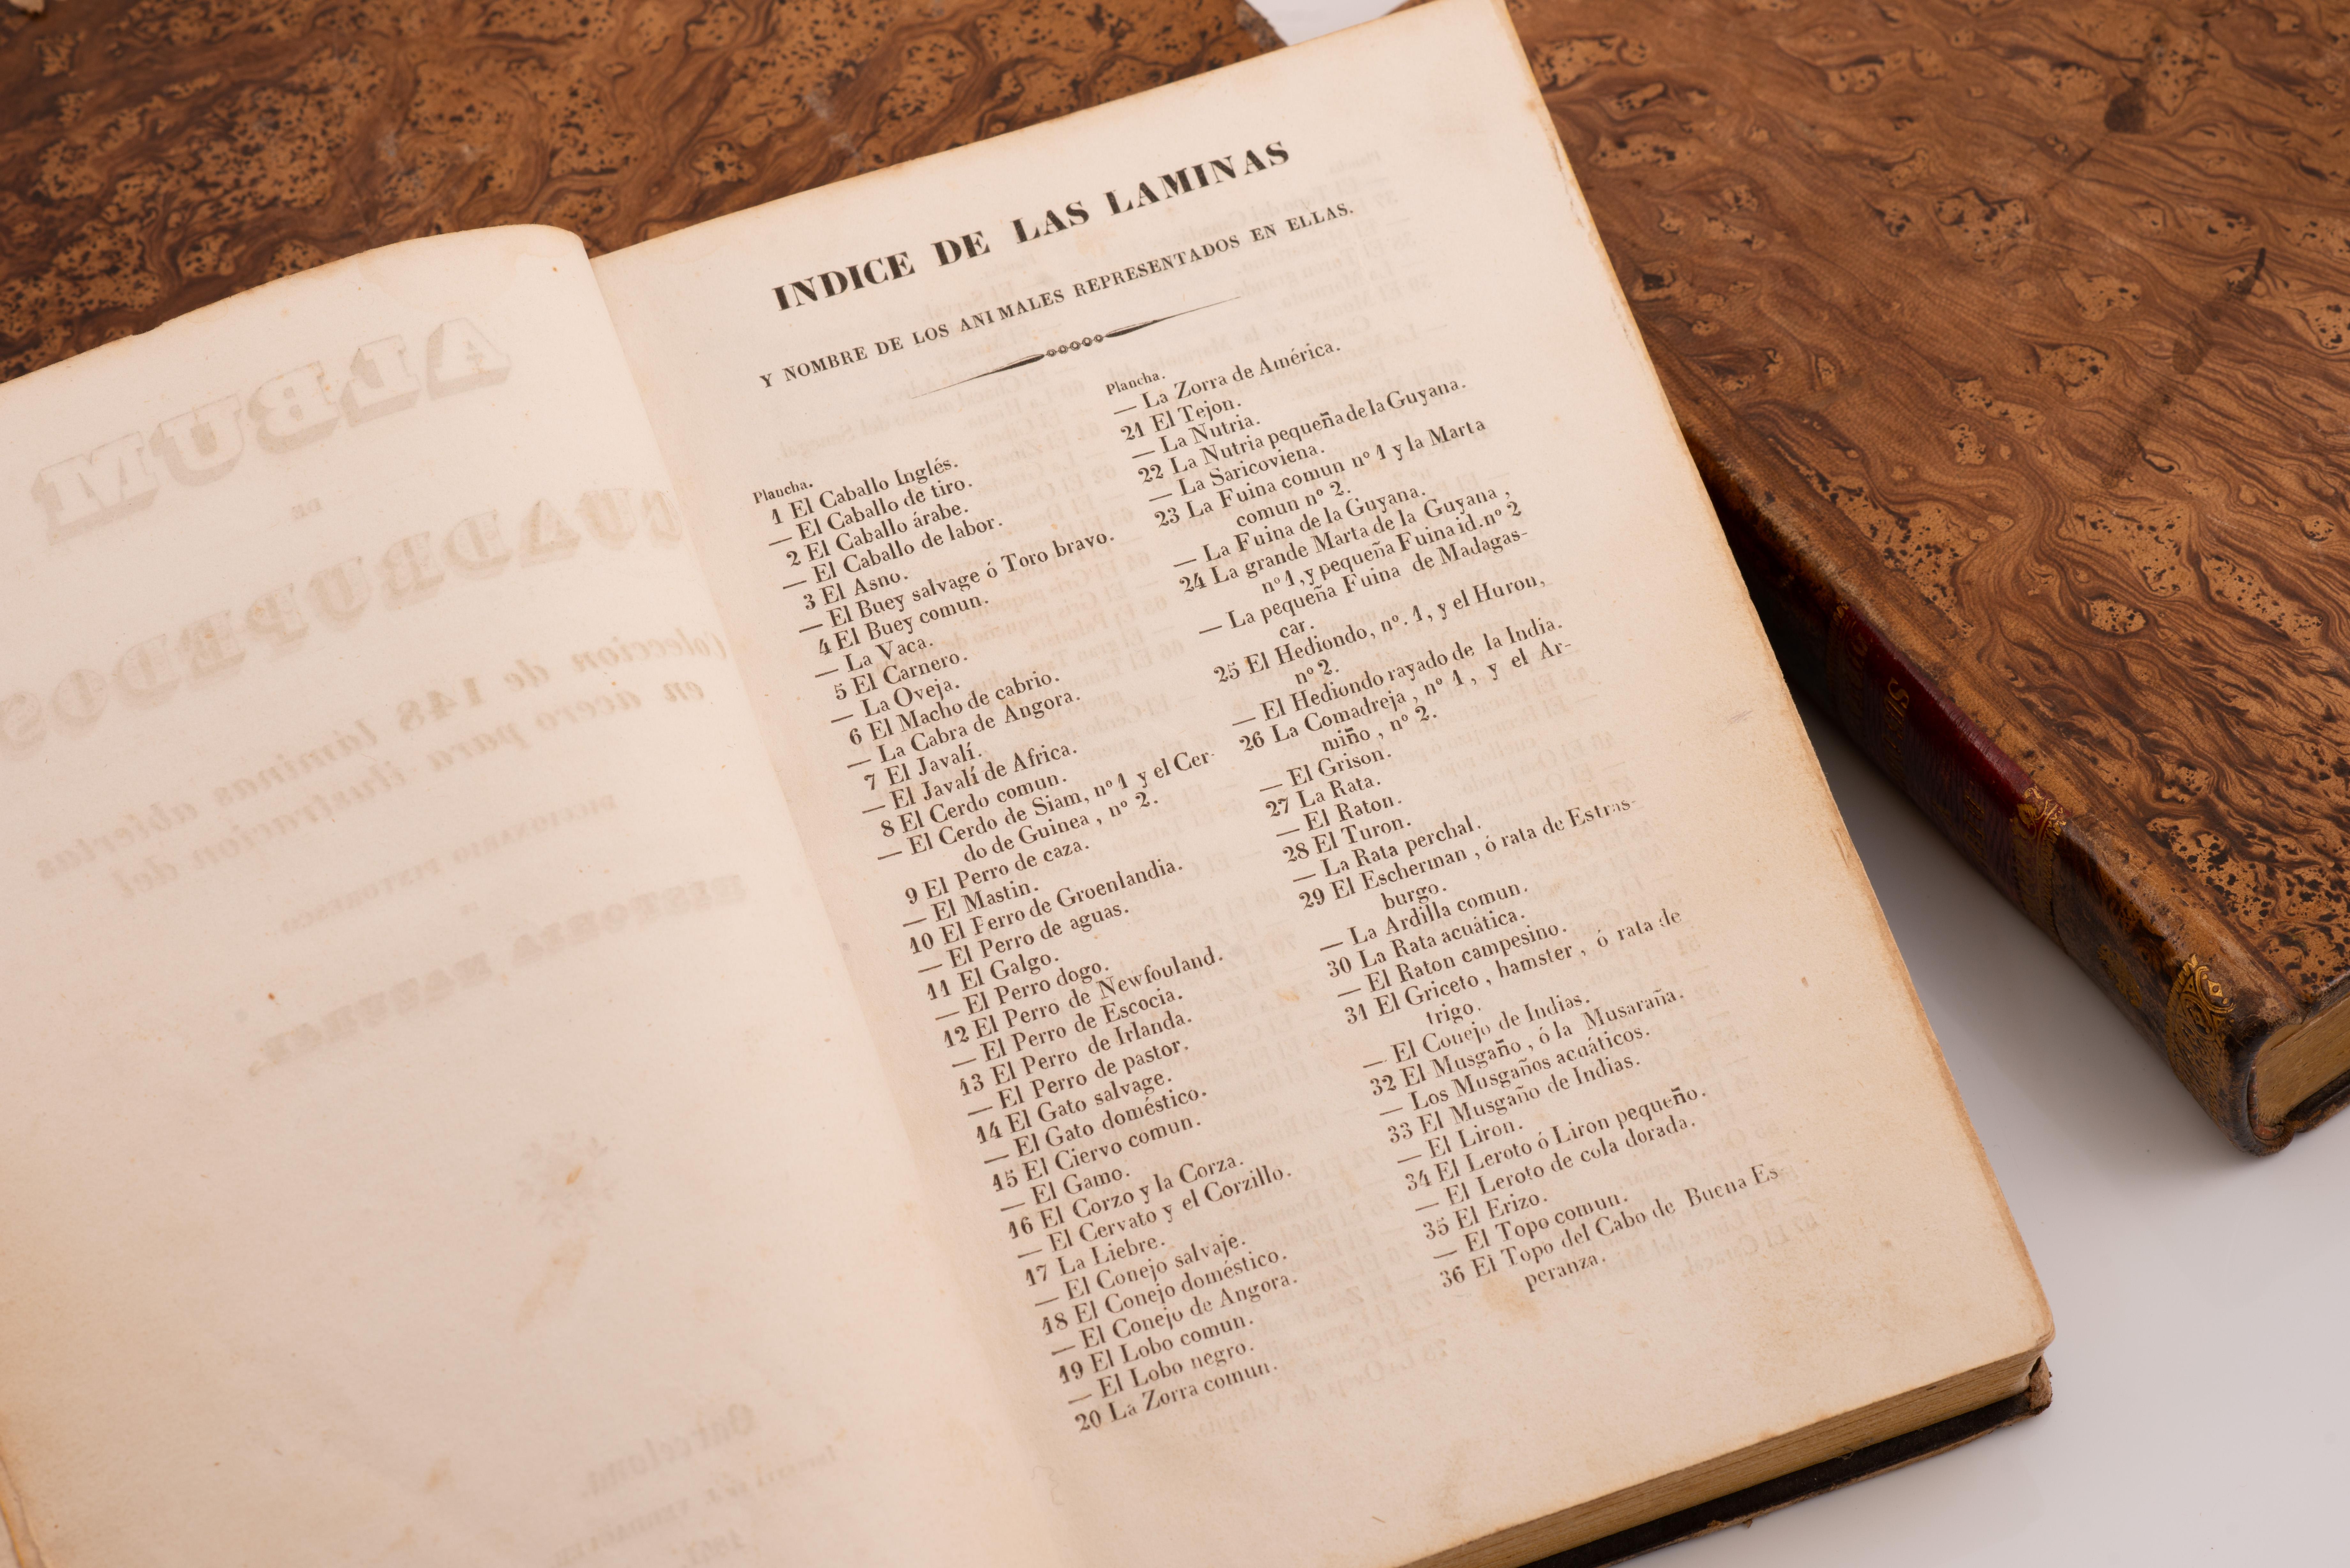 ALBUM
DE
CUADRUPEDOS
Coleccion de 148 láminas abiertas
en acero para ilustracion del
DICCIONARIO PINTORESCO
DE
HISTORIA NATURAL
Barcelona
INDICE DE LAS LAMINAS
Y NOMBRE DE LOS ANIMALES REPRESENTADOS EN ELLAS.
Plancha.
1 El Caballo Inglés.
— El Caballo de tiro.
2 El Caballo árabe.
— El Caballo de labor.
3 El Asno.
— El Buey salvage ó Toro bravo.
4 El Buey comun.
— La Vaca.
5 El Carnero.
— La Oveja.
6 El Macho de cabrio.
— La Cabra de Angora.
7 El Javalí.
— El Javalí de Africa.
8 El Cerdo comun.
— El Cerdo de Siam, nº 1 y el Cer-
do de Guinea, nº 2.
9 El Perro de caza.
— El Mastin.
10 El Perro de Groenlandia.
— El Perro de aguas.
11 El Galgo.
— El Perro dogo.
12 El Perro de Newfouland.
— El Perro de Escocia.
13 El Perro de Irlanda.
— El Perro de pastor.
14 El Gato salvage.
— El Gato doméstico.
15 El Ciervo comun.
— El Gamo.
16 El Corzo y la Corza.
— El Cervato y el Corzillo.
17 La Liebre.
— El Conejo salvaje.
18 El Conejo doméstico.
— El Conejo de Angora.
19 El Lobo comun.
— El Lobo negro.
20 La Zorra comun.
Plancha.
— La Zorra de América.
21 El Tejon.
— La Nutria.
22 La Nutria pequeña de la Guyana.
— La Saricoviena.
23 La Fuina comun nº 1 y la Marta
comun nº 2.
— La Fuina de la Guyana.
24 La grande Marta de la Guyana,
nº 1, y pequeña Fuina id. nº 2
— La pequeña Fuina de Madagas-
car.
25 El Hediondo, nº. 1, y el Huron,
nº 2.
— El Hediondo rayado de la India.
26 La Comadreja, nº 1, y el Ar-
miño, nº 2.
— El Grison.
27 La Rata.
— El Raton.
28 El Turon.
— La Rata perchal.
29 El Escherman, ó rata de Estras-
burgo.
— La Ardilla comun.
30 La Rata acuática.
— El Raton campesino.
31 El Griceto, hamster, ó rata de
trigo.
— El Conejo de Indias.
32 El Musgaño, ó la Musaraña.
— Los Musgaños acuáticos.
33 El Musgaño de Indias.
— El Liron.
34 El Leroto ó Liron pequeño.
— El Leroto de cola dorada.
35 El Erizo.
— El Topo comun.
36 El Topo del Cabo de Buena Es-
peranza.